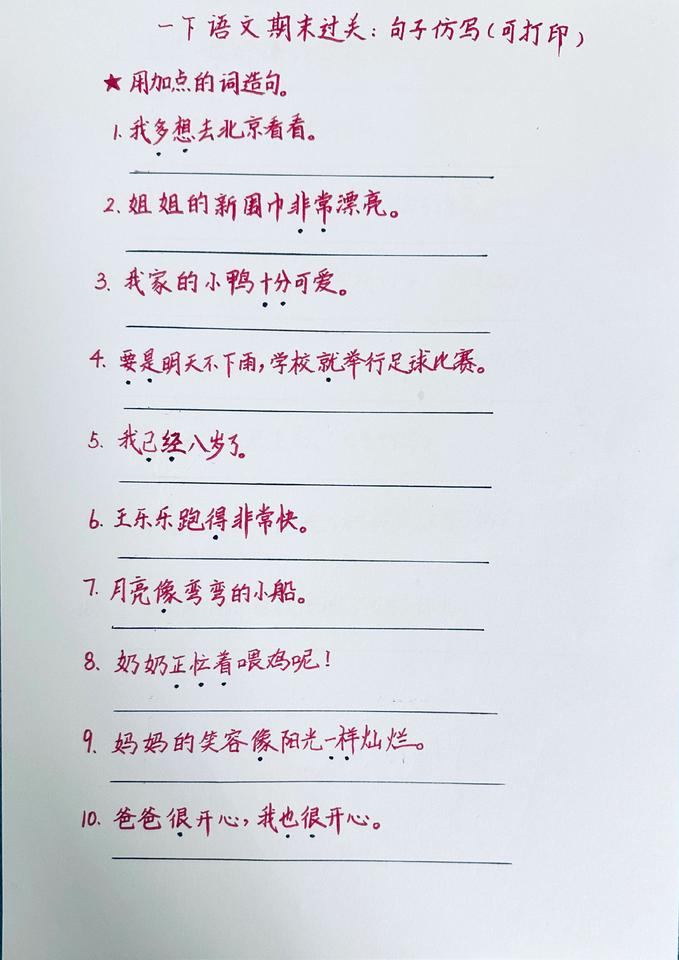 一下语文期末过关：句子仿写（可打印）
★用加点的词造句。
1. 我多想去北京看看。
2. 姐姐的新围巾非常漂亮。
3. 我家的小鸭十分可爱。
4. 要是明天不下雨，学校就举行足球比赛。
5. 我已经八岁了。
6. 王乐乐跑得非常快。
7. 月亮像弯弯的小船。
8. 奶奶正忙着喂鸡呢！
9. 妈妈的笑容像阳光一样灿烂。
10. 爸爸很开心，我也很开心。